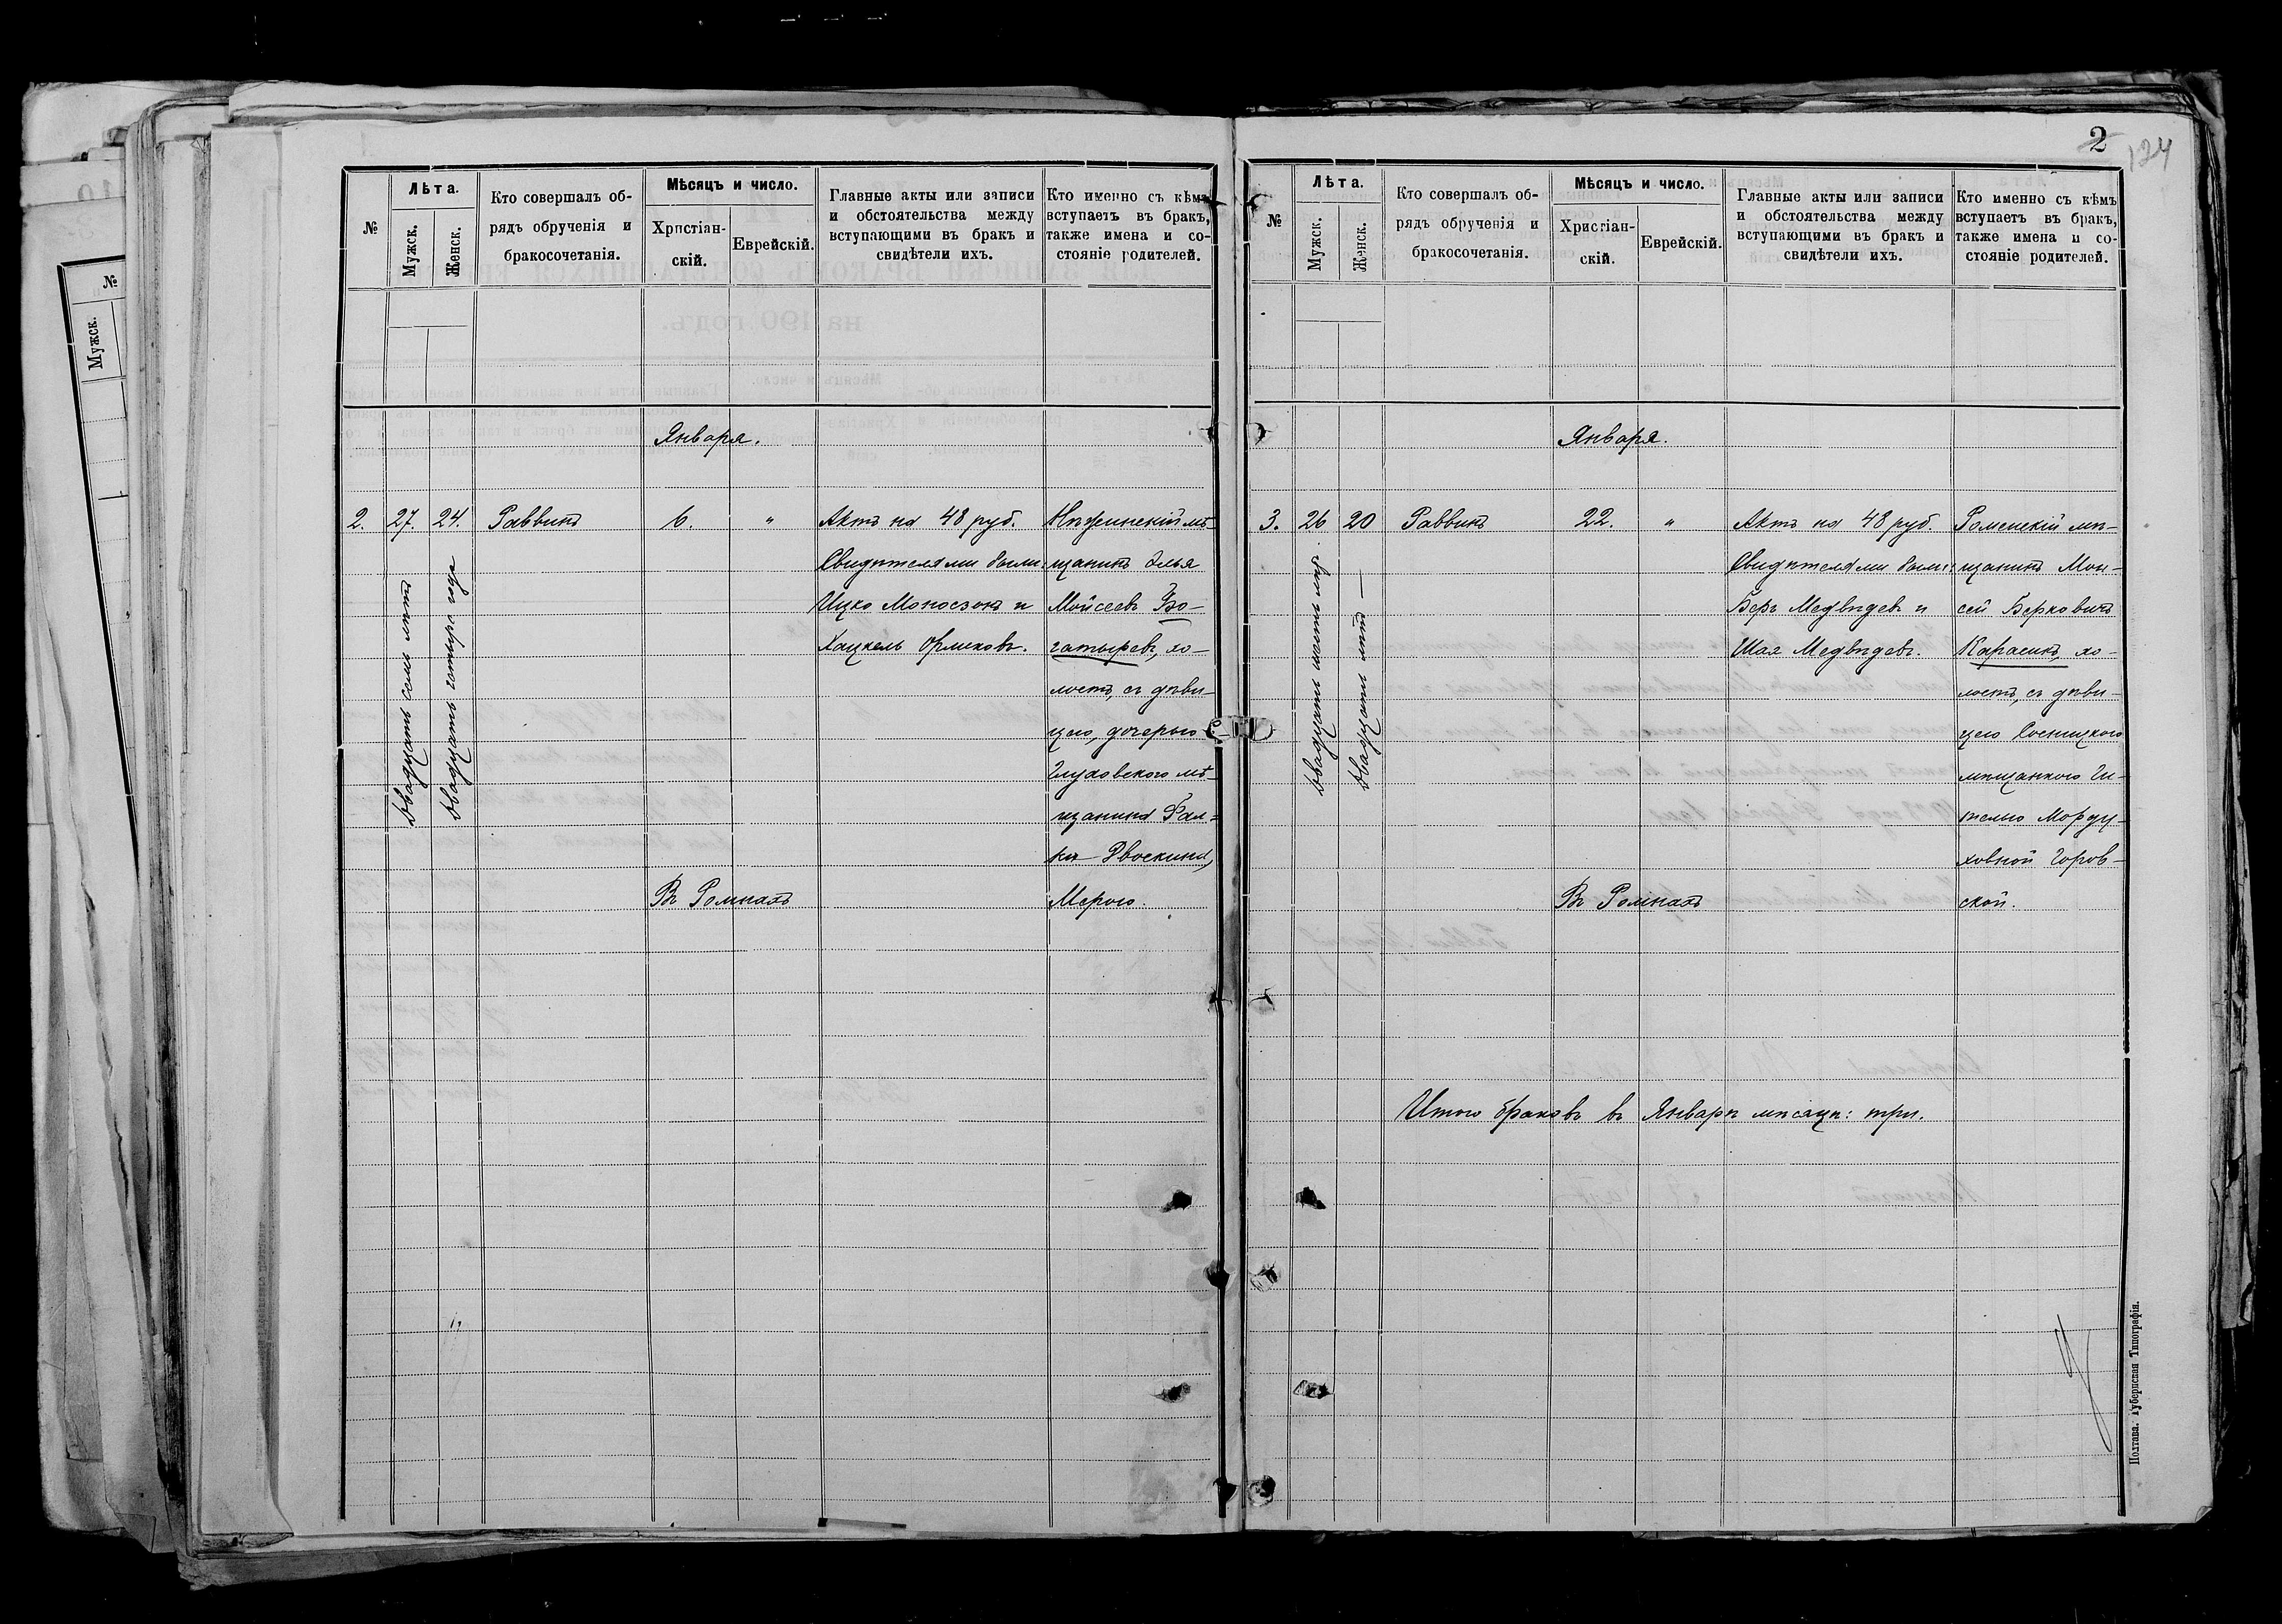 2
124
№
Мужск.
№
Лѣта.
Мужск.
Женск.
Кто совершалъ об-
рядъ обрученія и
бракосочетанія.
Мѣсяцъ и число.
Христіан-
скій.
Еврейскій.
Главные акты или записи
и обстоятельства между
вступающими въ бракъ и
свидѣтели ихъ.
Кто именно съ кѣмъ
вступаетъ въ бракъ,
также имена и со-
стояніе родителей.
Января.
2. 27. 24. Раввинъ 6. "
двадцать семь лѣтъ
двадцать четыре года
Актъ на 48 руб.
Свидѣтелями были:
Ицко Моносзонъ и
Хацкель
Нѣжинскій мѣ-
щанинъ Элья
Мойсеевъ Бо-
гатыревъ, хо-
лостъ, съ дѣви-
цею, дочерью
Глуховского мѣ-
щанина Фал-
ка Рвоскина,
Мерою.
Въ Ромнахъ
№
Лѣта.
Мужск.
Женск.
Кто совершалъ об-
рядъ обрученія и
бракосочетанія.
Мѣсяцъ и число.
Христіан-
скій.
Еврейскій.
Главные акты или записи
и обстоятельства между
вступающими въ бракъ и
свидѣтели ихъ.
Кто именно съ кѣмъ
вступаетъ въ бракъ,
также имена и со-
стояніе родителей.
Января.
3. 26 20 Раввинъ 22. "
двадцать шесть лѣтъ
двадцать лѣтъ —
Актъ на 48 руб.
Свидѣтелями были:
Беръ Медвѣдевъ и
Шая Медвѣдевъ.
Роменскій мѣ-
щанинъ Мои-
сей Берковичъ
Карасикъ, хо-
лостъ, съ дѣви-
цею Сосницкою
мѣщанкою Ги-
телью Морду-
ховной Горов-
ской.
Въ Ромнахъ
Итого браковъ въ Январѣ мѣсяцѣ: три.
Полтава. Губернская Типографія.